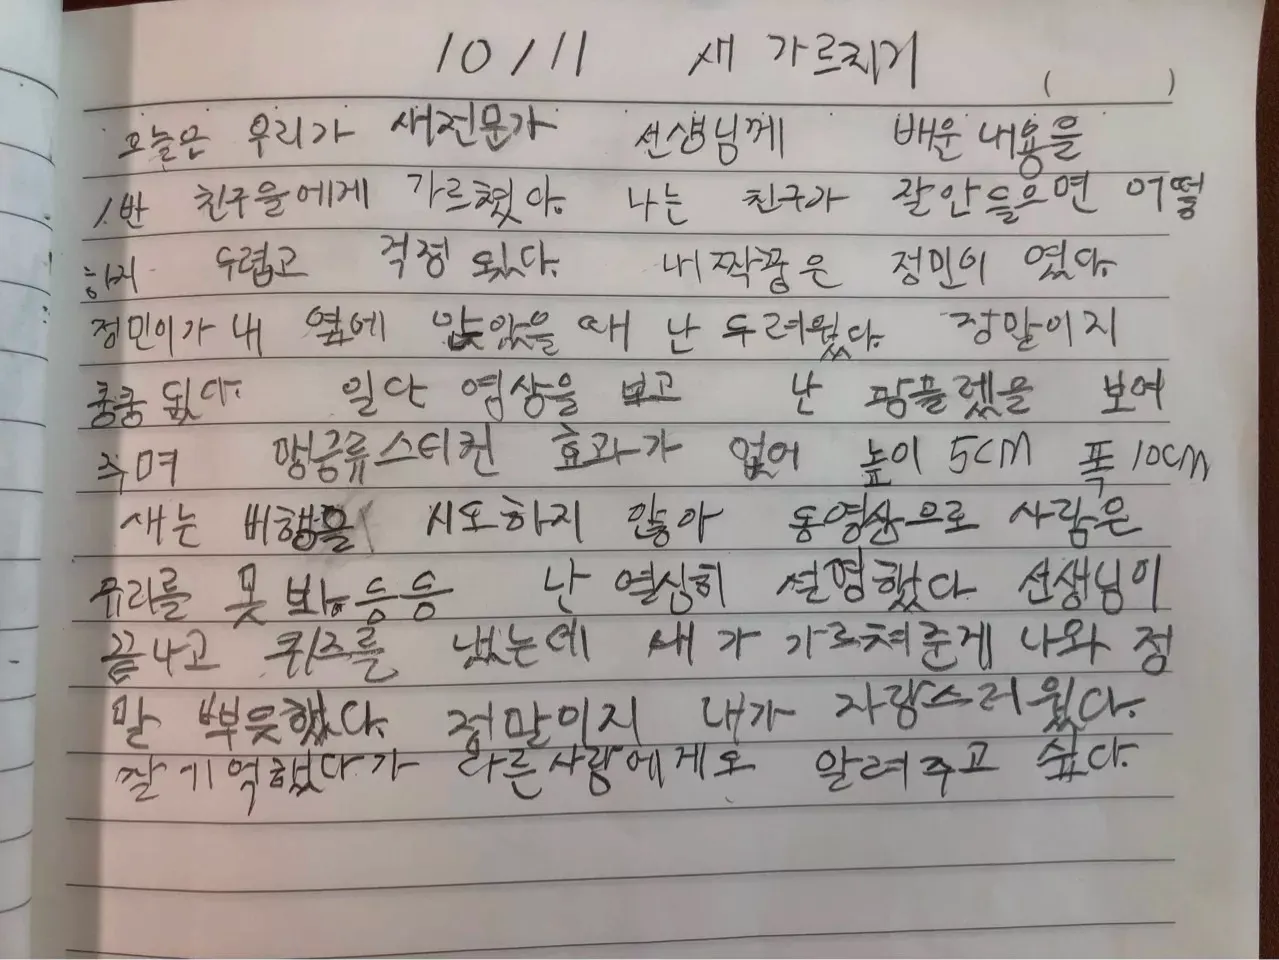 10/11 새 가르치기
( )
오늘은 우리가 새전문가 선생님께 배운 내용을
1반 친구들에게 가르쳤다. 나는 친구가 잘안들으면 어떻
하지 두렵고 걱정 됬다. 내짝꿍은 정민이 였다.
정민이가 내 옆에 앉았을 때 난 두려웠다. 정말이지
쿵쿵 됬다. 일단 영상을 보고 난 팜플렛을 보여
주며 맹금류스티컨 효과가 없어 높이 5CM 폭 10CM
새는 비행을 시도하지 않아 동영상으로 사람은
유리를 못 봐 등등 난 열심히 설명했다 선생님이
끝나고 퀴즈를 냈는데 새 가 가르쳐준게 나와 정
말 뿌듯했다. 정말이지 내가 자랑스러웠다.
잘기억했다가 다른사람에게도 알려주고 싶다.